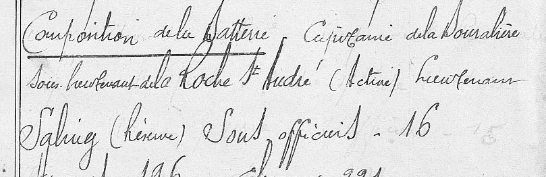 Composition de la Batterie - Capitaine de la Douralière
sous lieutenant de la Roche St André (Active) Lieutenant
Salney (Réserve) Sous officiers - 16
196 221